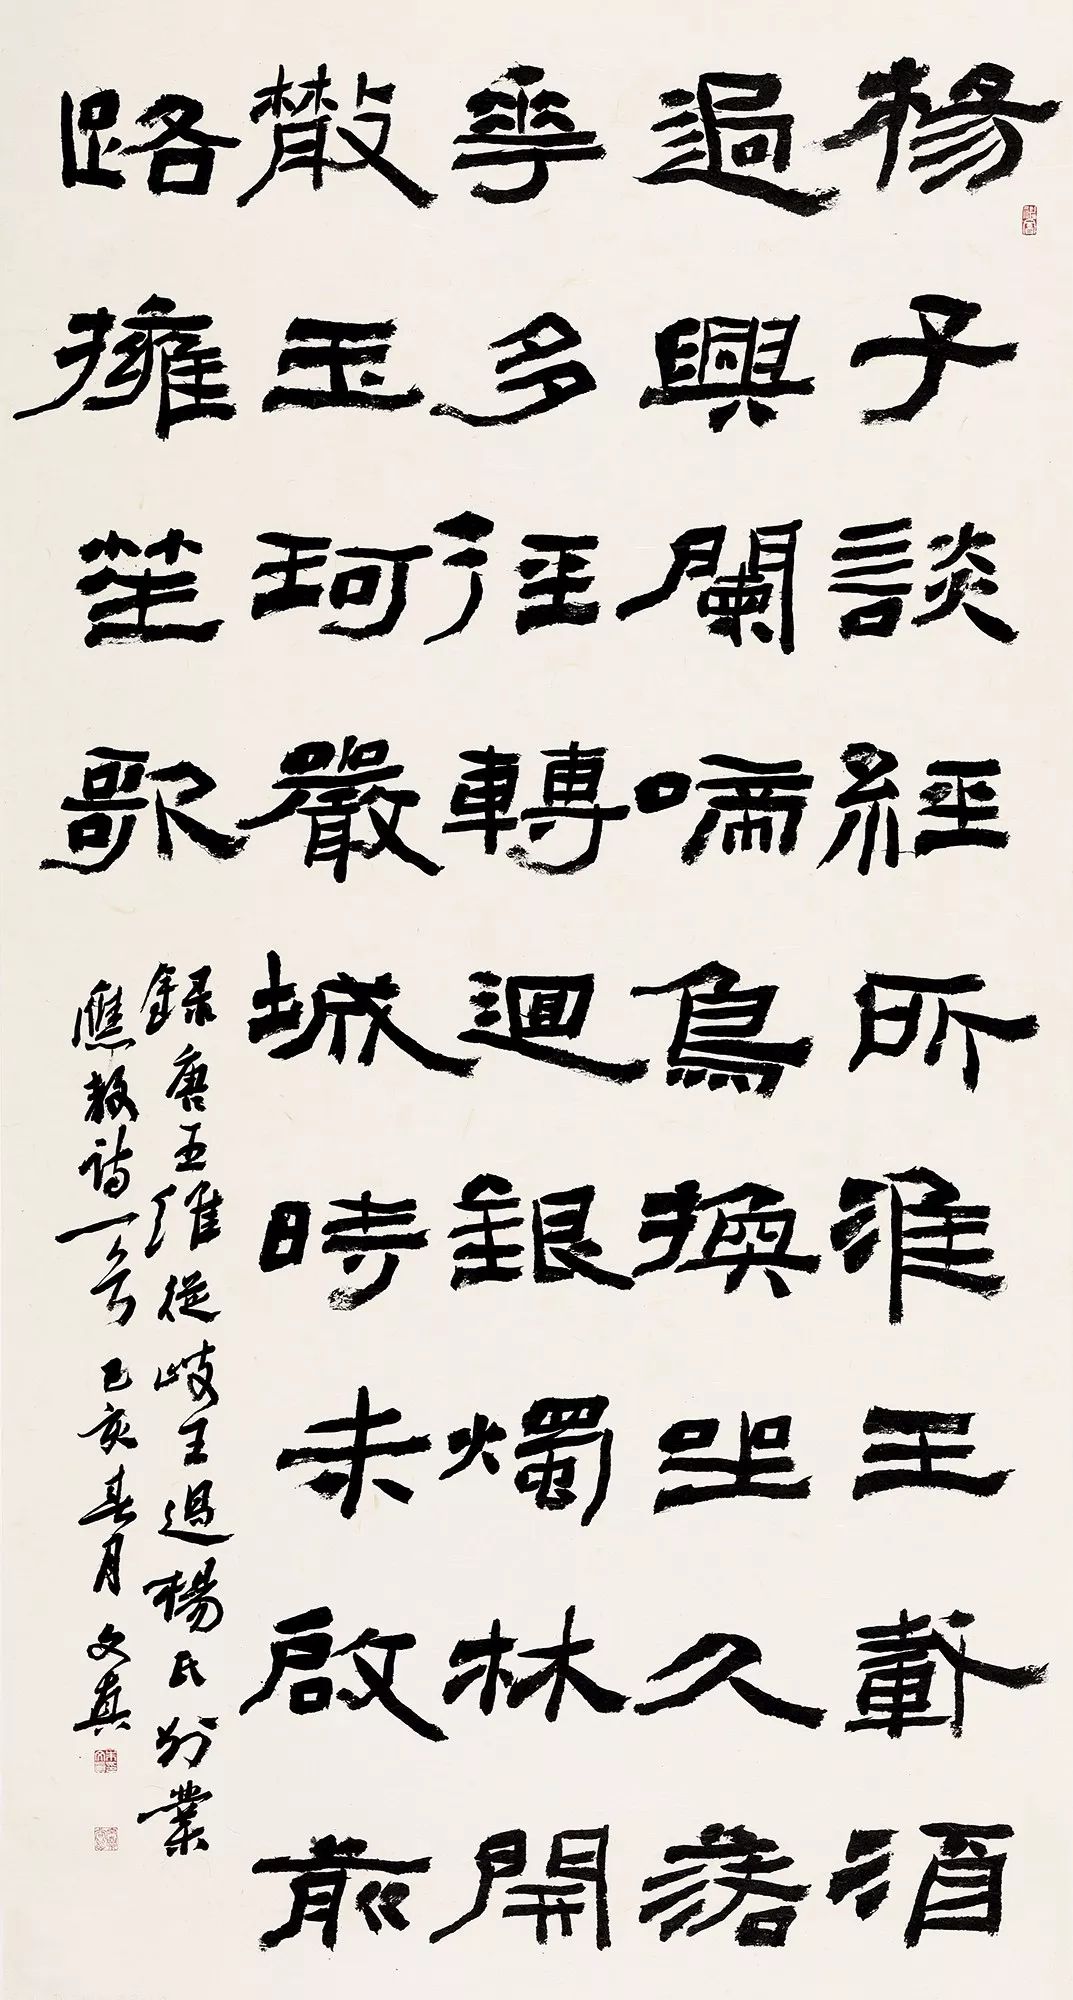 楊子談經所淮王載酒
過興闌啼鳥換坐久落
華多徑轉迴銀燭林開
散玉珂嚴城時未啟前
路擁笙歌
錄唐王維從岐王過楊氏別業
應教詩一首 己亥春月 文真